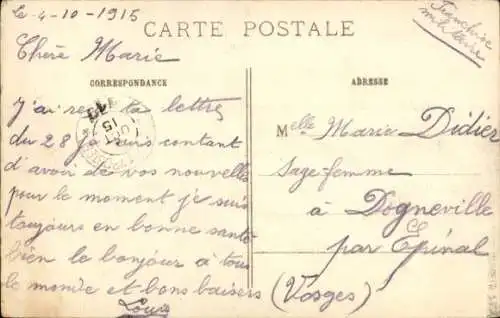 le 4-10-1915
CARTE POSTALE
Franchise
militaire
Chère Marie
CORRESPONDANCE
ADRESSE
J'ai reçu ta lettre
du 28 je suis contant
d'avoir de vos nouvelles
pour le moment je suis
toujours en bonne santé
bien le bonjour à tous
le monde et bons baisers
Louis
Melle Marie Didier
Sage-femme
à Dogneville
par Epinal
(Vosges)